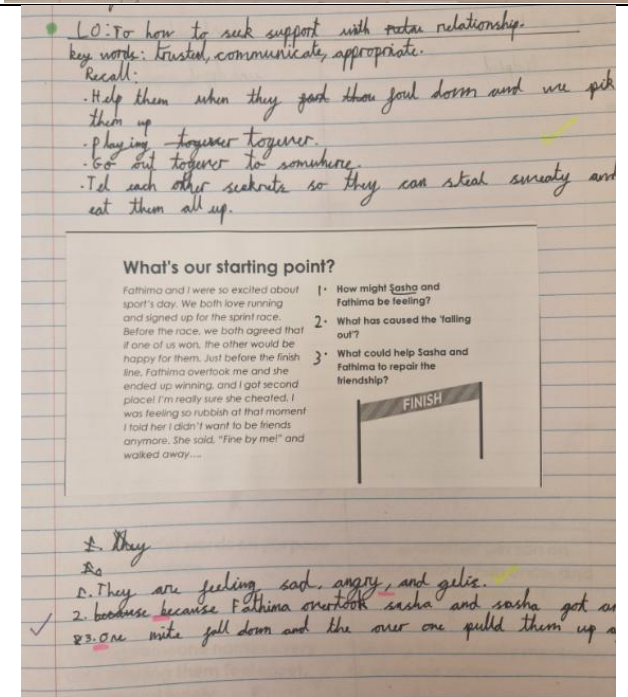 LO: To how to seek support with relationship.
key words: trusted, communicate, appropriate.
Recall:
. Help them when they foul down and we pik
them up
. Playing togeuver.
. Go out togever to somwhere.
. Tel each other seekrets so they can steal sweaty and
eat them all up.
What's our starting point?
Fathima and I were so excited about
sport's day. We both love running
and signed up for the sprint race.
Before the race, we both agreed that
if one of us won, the other would be
happy for them. Just before the finish
line, Fathima overtook me and she
ended up winning, and I got second
place! I'm really sure she cheated. I
was feeling so rubbish at that moment
I told her I didn't want to be friends
anymore. She said, "Fine by me!" and
walked away....
1. How might Sasha and
Fathima be feeling?
2. What has caused the 'falling
out'?
3. What could help Sasha and
Fathima to repair the
friendship?
FINISH
1. They
1. They are feeling sad, angry, and gelis.
2. because because Fathima overtook sasha and sasha got
3. One mite fall down and the over one pulld them up